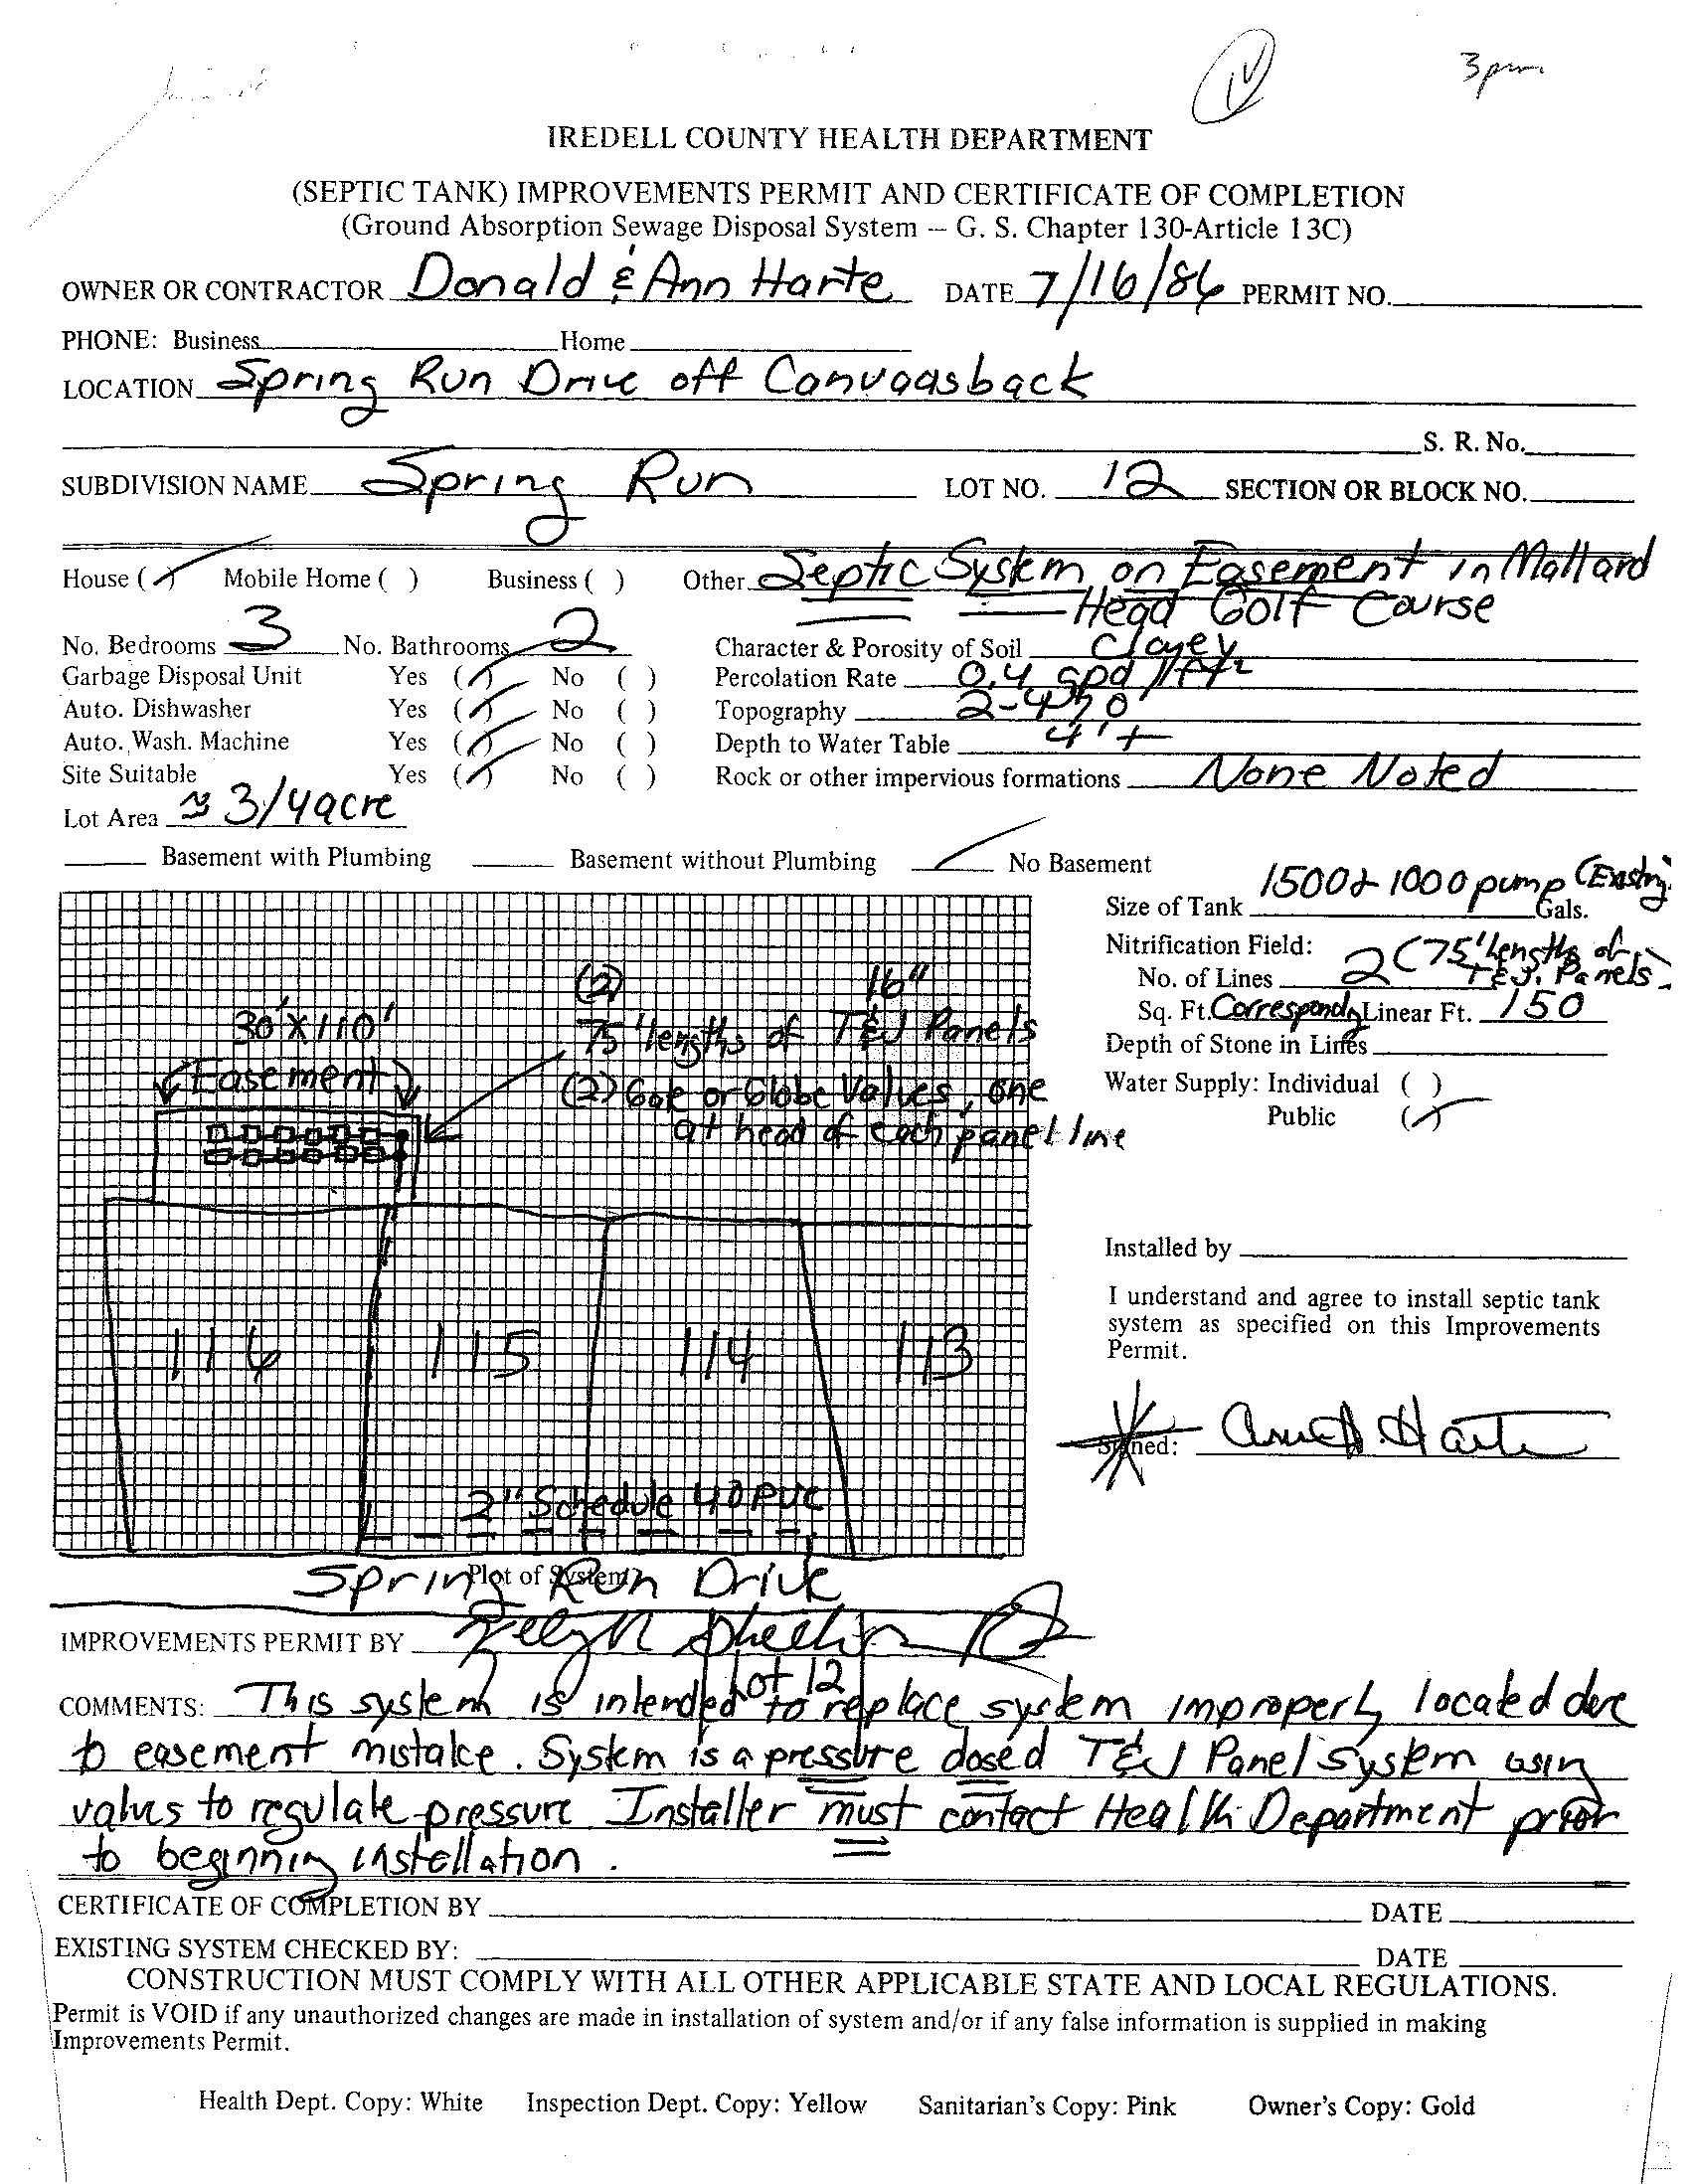 3pm
IREDELL COUNTY HEALTH DEPARTMENT
(SEPTIC TANK) IMPROVEMENTS PERMIT AND CERTIFICATE OF COMPLETION
(Ground Absorption Sewage Disposal System – G. S. Chapter 130-Article 13C)
OWNER OR CONTRACTOR Donald & Ann Harte DATE 7/16/86 PERMIT NO.
PHONE: Business Home
LOCATION Spring Run Drive off Canvaasback
S. R. No.
SUBDIVISION NAME Spring Run LOT NO. 12 SECTION OR BLOCK NO.
House (✓) Mobile Home ( ) Business ( ) Other Septic System on Easement in Mallard
Head Golf Course
No. Bedrooms 3 No. Bathrooms 2 Character & Porosity of Soil Clayey
Garbage Disposal Unit Yes (✓) No ( ) Percolation Rate 0.4 gpd/ft2
Auto. Dishwasher Yes (✓) No ( ) Topography 2-4%
Auto. Wash. Machine Yes (✓) No ( ) Depth to Water Table 4'+
Site Suitable Yes (✓) No ( ) Rock or other impervious formations None Noted
Lot Area ≈ 3/4 acre
Basement with Plumbing Basement without Plumbing ✓ No Basement
Size of Tank 1500 & 1000 pump (Existing) Gals.
Nitrification Field:
No. of Lines 2 (75' lengths of
T&J. Panels
Sq. Ft. Linear Ft. 150
Depth of Stone in Lines
Water Supply: Individual ( )
Public (✓)
(2) 16"
75' lengths of T&J Panels
(2) Gate or Globe Valves, one
at head of each panel line
30' X 110'
Easement
116 115 114 113
2" Schedule 40 PVC
Installed by
I understand and agree to install septic tank
system as specified on this Improvements
Permit.
Signed: Harte
Plot of System
Spring Run Drive
IMPROVEMENTS PERMIT BY
Lot 12
COMMENTS: This system is intended to replace system improperly located due
to easement mistake. System is a pressure dosed T&J Panel System using
valves to regulate pressure Installer must contact Health Department prior
to beginning installation.
CERTIFICATE OF COMPLETION BY DATE
EXISTING SYSTEM CHECKED BY: DATE
CONSTRUCTION MUST COMPLY WITH ALL OTHER APPLICABLE STATE AND LOCAL REGULATIONS.
Permit is VOID if any unauthorized changes are made in installation of system and/or if any false information is supplied in making
Improvements Permit.
Health Dept. Copy: White Inspection Dept. Copy: Yellow Sanitarian's Copy: Pink Owner's Copy: Gold